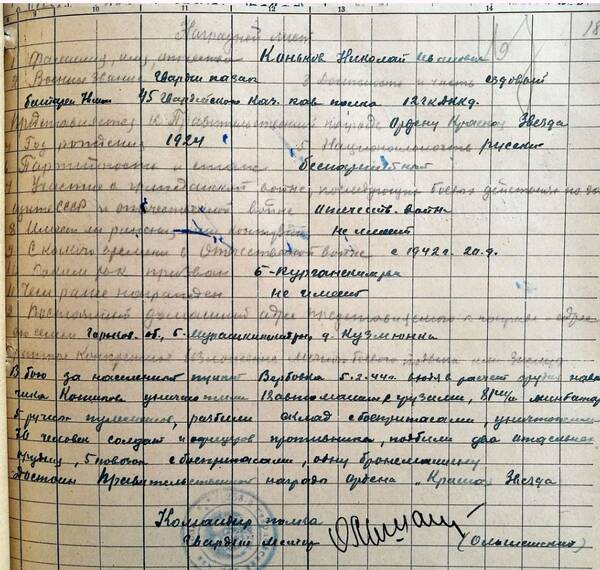 10 11 12 13 14
18
Наградной лист
19
1 Фамилия, имя, отчество Коньков Николай Иванович
2 Военное звание Гвардии казак 3 Должность и часть ездовый
батареи 45 Гвардейского каз. кав полка 12 ГКДККД.
Представляется к Правительственной награде Ордену Красная Звезда
4 Год рождения 1924 5 Национальность русский
6 Партийность и стаж беспартийный
7 Участие в гражданской войне, последующих боевых действиях по за
щите СССР и отечественной войне отечеств. война
8 Имеет ли ранения и контузии не имеет
9 С какого времени в Отечественной войне с 1942 г.
10 Каким РВК призван Б-Курганским рвк
11 Чем ранее награжден не имеет
12 Постоянный домашний адрес представляемого к награде и адрес
его семьи Горьков. об, Б. Мурашкинский р-н, д. Кузмюнка
Краткое конкретное изложение личного боевого подвига или заслуг
В бою за населенный пункт Вербовка 5.2.44г. в расчет орудия
Конькова уничтожили автомашин с грузами, миномета
5 ручных пулеметов, разбили склад с боеприпасами, уничтожили
70 человек солдат и офицеров противника, подбили два
орудия, 5 повозок с боеприпасами, одну бронемашину
Достоин Правительственной награды ордена "Красная Звезда
Командир полка
Гвардии майор (Ольшанский)